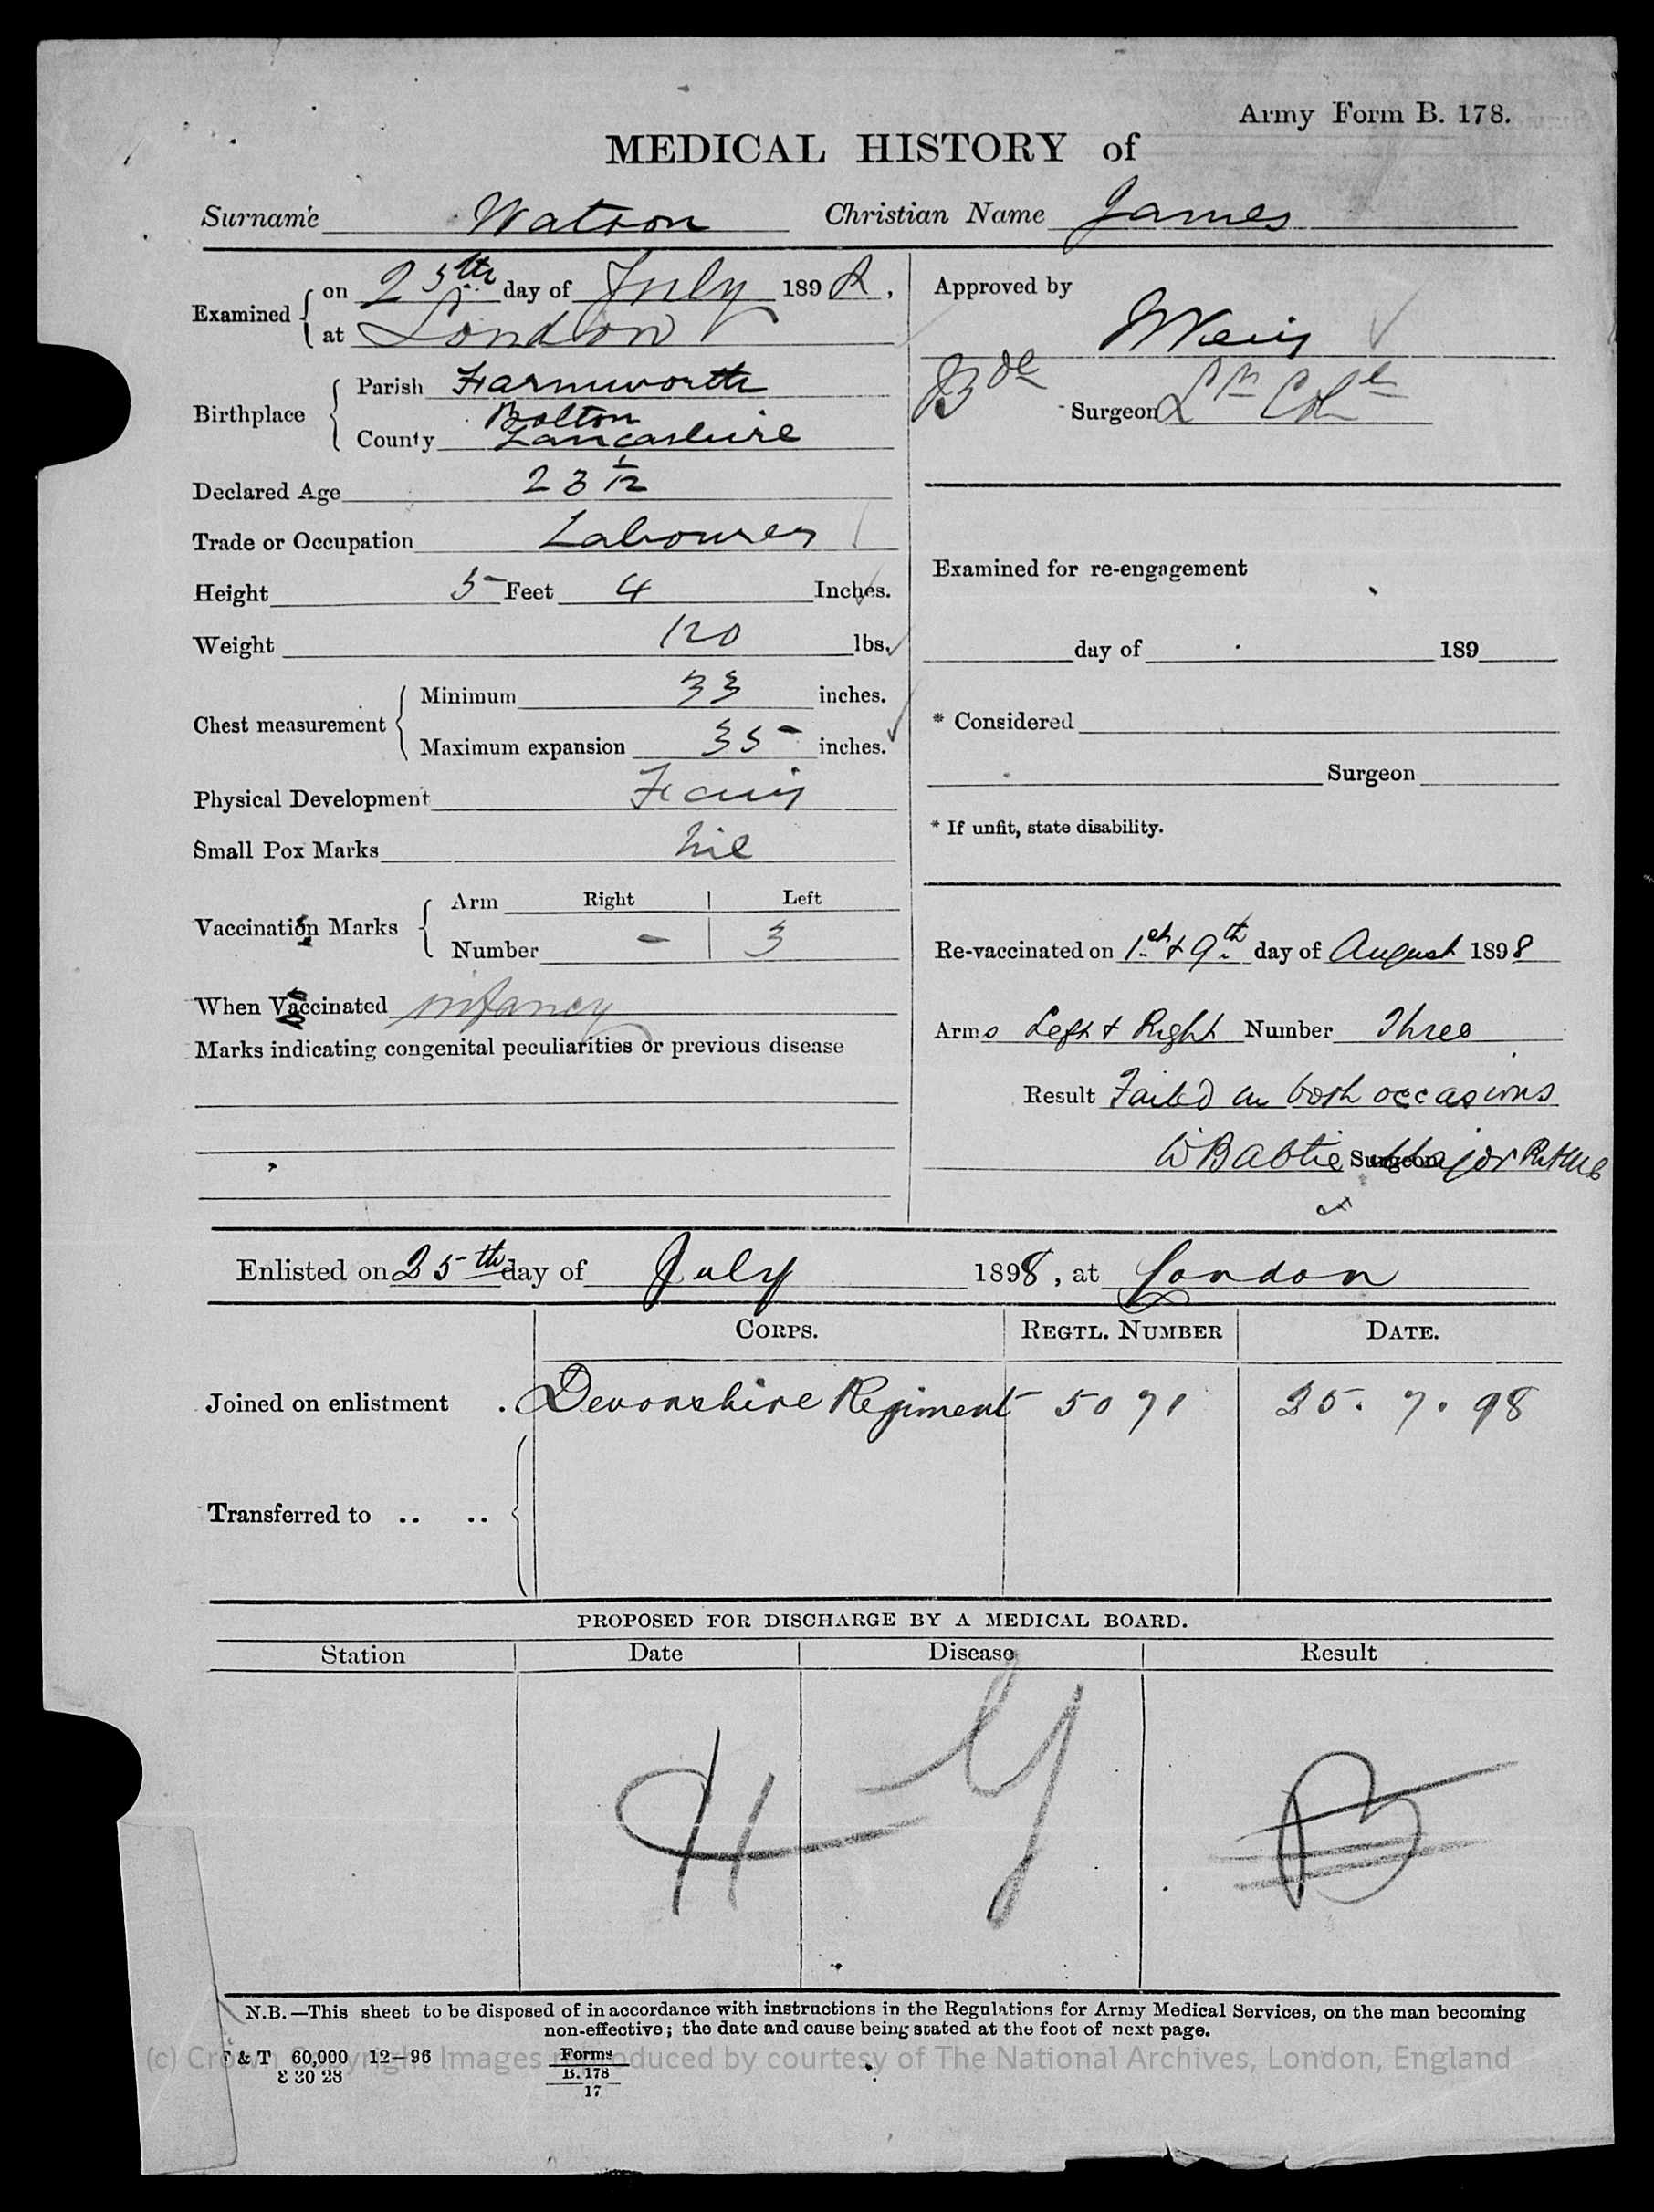 Army Form B. 178.
MEDICAL HISTORY of
Surname Watson Christian Name James
Examined on 25th day of July 1898,
at London
Birthplace Parish Farnworth
Bolton
County Lancashire
Declared Age 23 1/12
Trade or Occupation Labourer
Height 5 Feet 4 Inches.
Weight 120 lbs.
Chest measurement Minimum 33 inches.
Maximum expansion 35 inches.
Physical Development Fair
Small Pox Marks nil
Vaccination Marks Arm Right Left
Number - 3
When Vaccinated infancy
Marks indicating congenital peculiarities or previous disease
Approved by
Surgeon Lt Col
Examined for re-engagement
day of 189
* Considered
Surgeon
* If unfit, state disability.
Re-vaccinated on 1st & 9th day of August 1898
Arms Left & Right Number Three
Result Failed on both occasions
W Babtie Surgeon Major RAMC
Enlisted on 25th day of July 1898, at London
CORPS. REGTL. NUMBER DATE.
Joined on enlistment . Devonshire Regiment 5071 25.7.98
Transferred to .. ..
PROPOSED FOR DISCHARGE BY A MEDICAL BOARD.
Station Date Disease Result
H - Y B
N.B.—This sheet to be disposed of in accordance with instructions in the Regulations for Army Medical Services, on the man becoming
non-effective; the date and cause being stated at the foot of next page.
F & T 60,000 12—96 Forms
B. 178
17
(c) Crown Copyright Images reproduced by courtesy of The National Archives, London, England